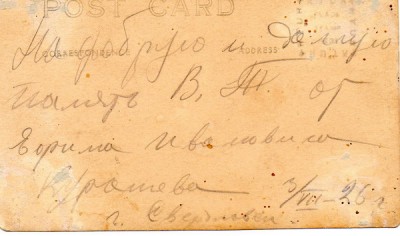 POST CARD
CORRESPONDENCE ADDRESS
На добрую и долгую
память В. Т. от
Ефима Ивановича
3/VII-26 г
г.